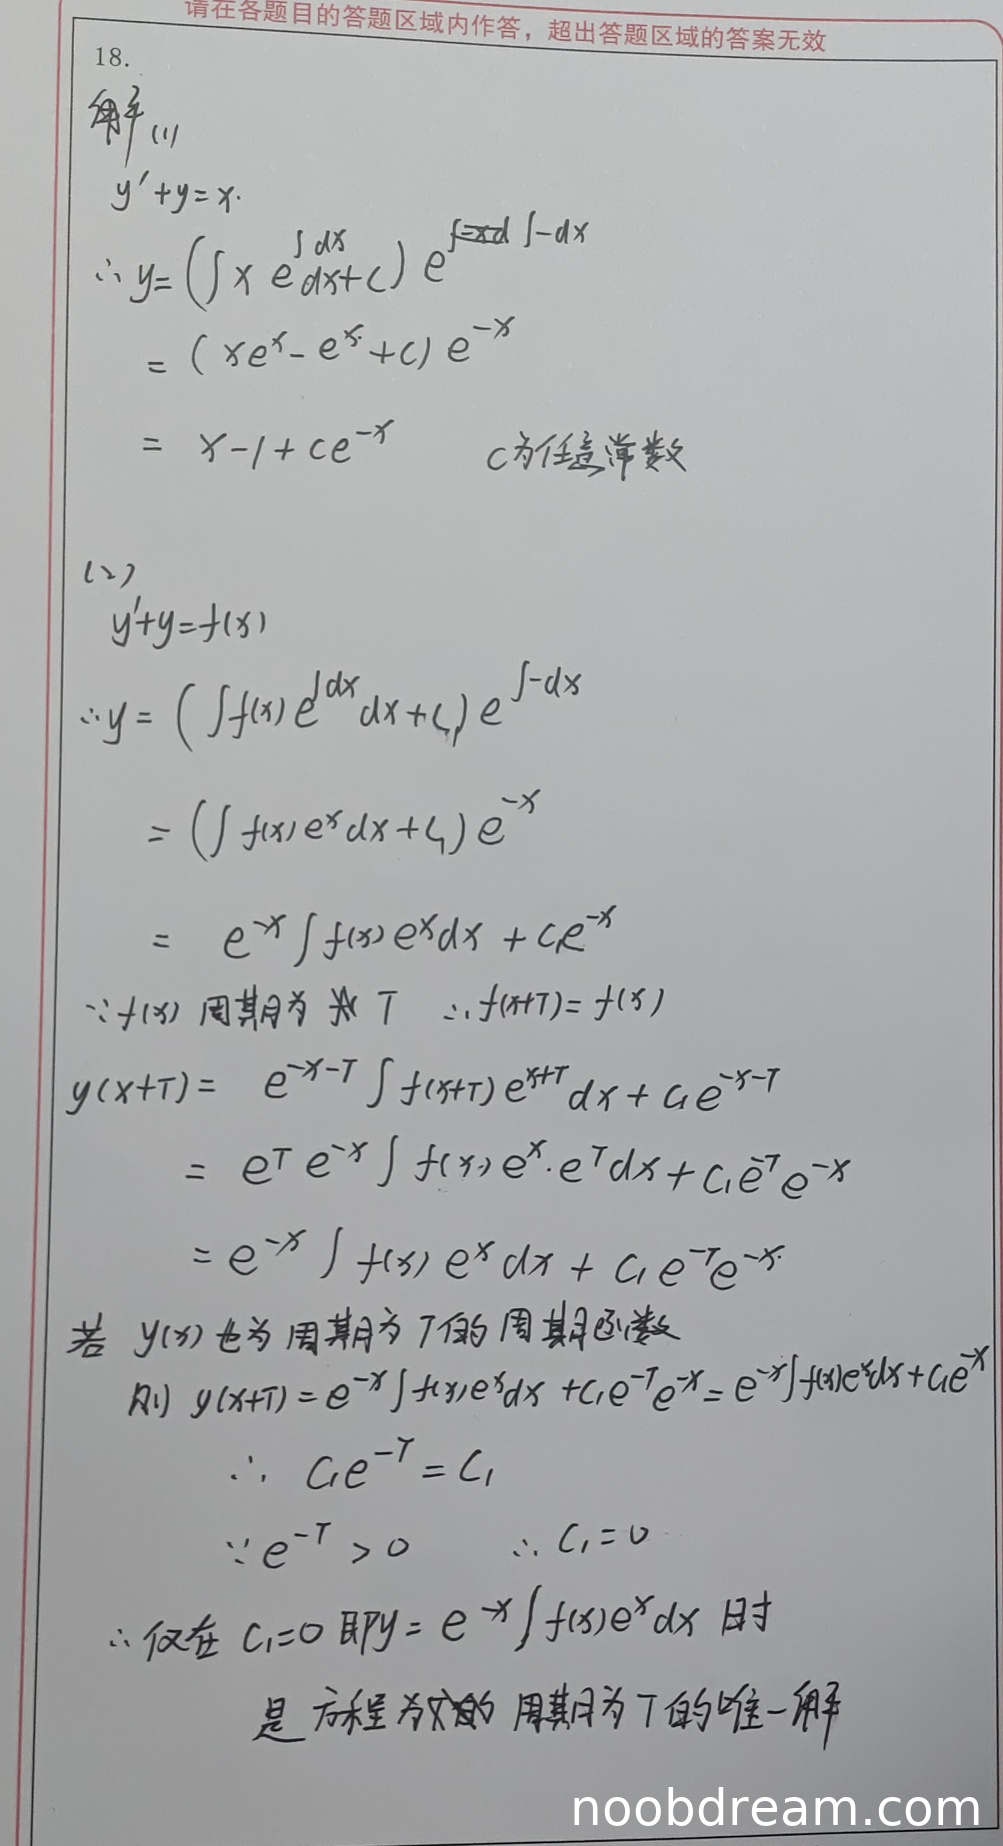 请在各题目的答题区域内作答，超出答题区域的答案无效
18.
解 (1)
y'+y=x.
∴ y=(∫x e^{∫dx}dx+C) e^{∫-dx}
= (xe^x-e^x+C) e^{-x}
= x-1+Ce^{-x} C为任意常数
(2)
y'+y=f(x)
∴y=(∫f(x)e^{∫dx}dx+C₁)e^{∫-dx}
=(∫f(x)e^x dx+C₁)e^{-x}
= e^{-x}∫f(x)e^x dx+C₁e^{-x}
∵f(x)周期为 T ∴f(x+T)=f(x)
y(x+T)= e^{-x-T}∫f(x+T)e^{x+T}dx+C₁e^{-x-T}
= e^T e^{-x}∫f(x)e^x·e^T dx+C₁e^{-T}e^{-x}
=e^{-x}∫f(x)e^x dx+C₁e^{-T}e^{-x}
若 y(x)也为周期为T的周期函数
则 y(x+T)=e^{-x}∫f(x)e^x dx+C₁e^{-T}e^{-x}=e^{-x}∫f(x)e^x dx+C₁e^{-x}
∴ C₁e^{-T}=C₁
∵e^{-T}>0 ∴C₁=0
∴仅在C₁=0即y=e^{-x}∫f(x)e^x dx时
是方程的周期为T的唯一解
noobdream.com